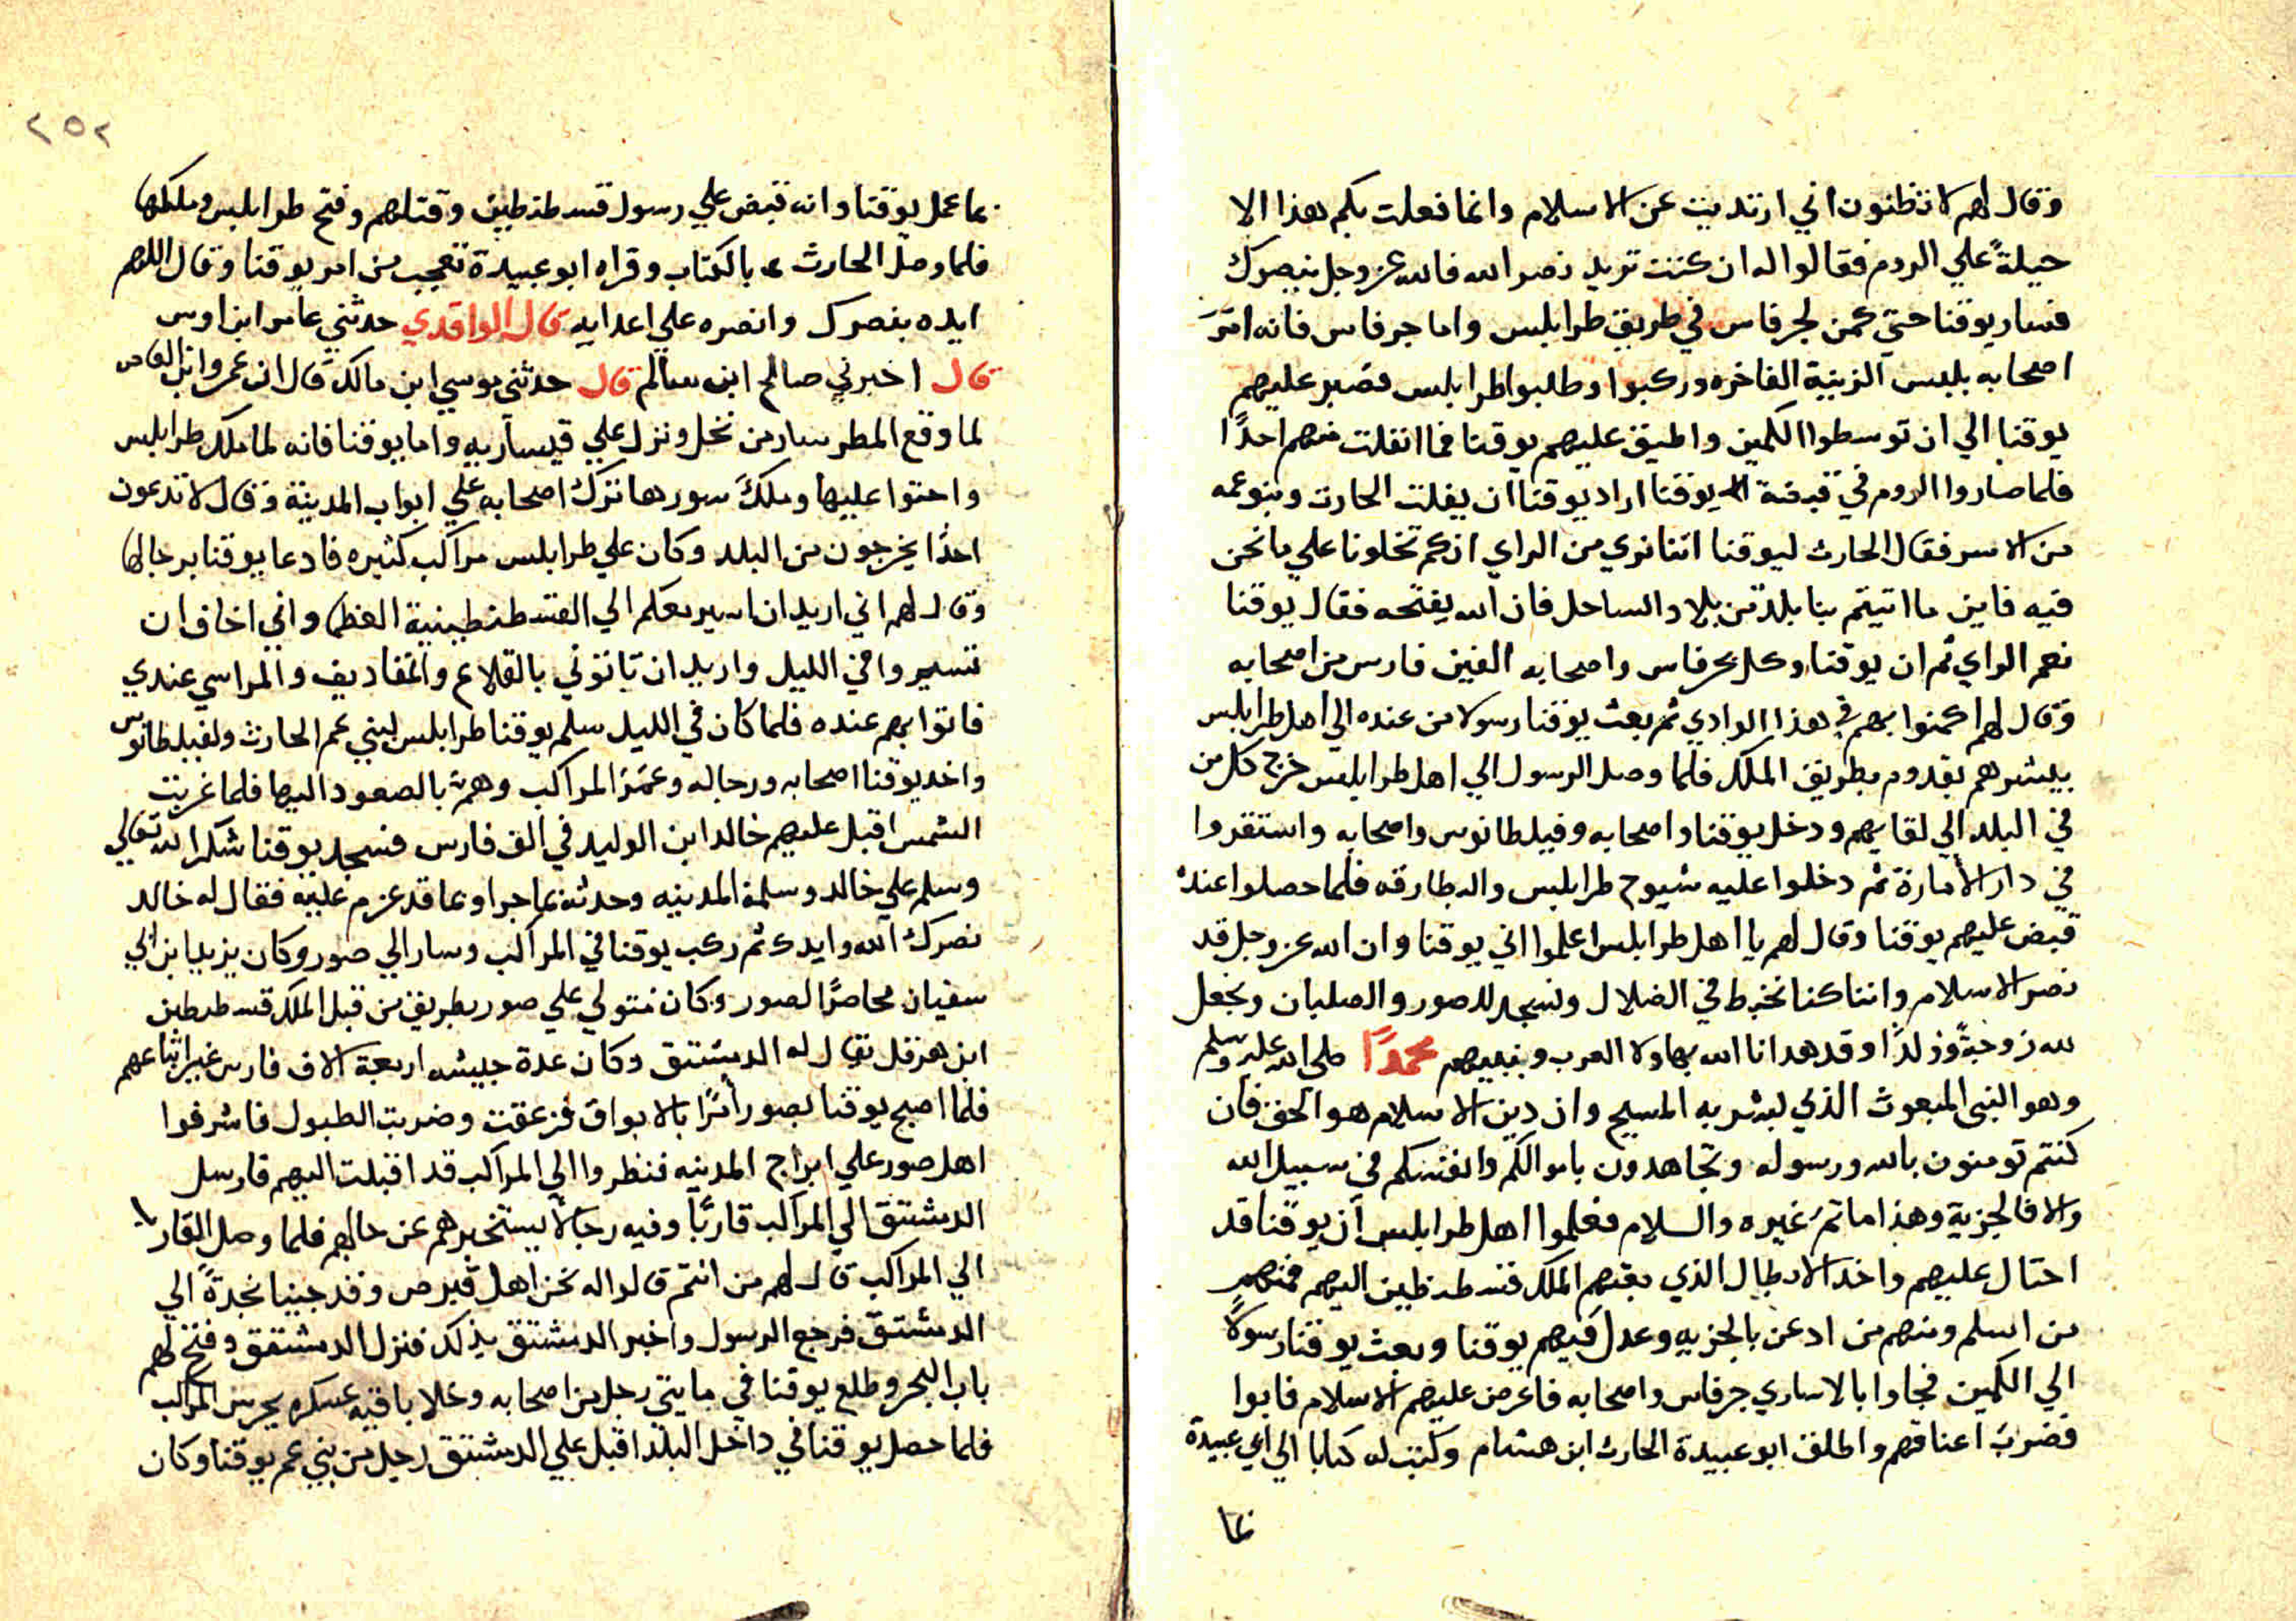 وقال لهم لا تظنون اني ارتديت عن الاسلام وانما فعلت بكم هذا الا
حيلةً علي الروم فقالوا له ان كنت تريد نصر الله فالله عز وجل ينصرك
فسار يوقنا حتي كمن لجرفاس في طريق طرابلس واما جرفاس فانه امر
اصحابه بلبس الزينة الفاخره وركبوا وطلبوا طرابلس فصبر عليهم
يوقنا الي ان توسطوا الكمين واطبق عليهم يوقنا فما انفلت منهم احدًا
فلما صاروا الروم في قبضة يوقنا اراد يوقنا ان يفلت الحارث وبنو عمه
من الاسر فقال الحارث ليوقنا اننا نري من الراي انكم تخلونا علي ما نحن
فيه فاين ما اتيتم بنا بلدة من بلاد الساحل فان الله يفتحه فقال يوقنا
نعم الراي ثم ان يوقنا وكل بجرفاس واصحابه الفين فارس من اصحابه
وقال لهم اكمنوا بهم في هذا الوادي ثم بعث يوقنا رسولا من عنده الي اهل طرابلس
يبشرهم بقدوم بطريق الملك فلما وصل الرسول الي اهل طرابلس خرج كل من
في البلد الي لقايهم ودخل يوقنا واصحابه وفيلطانوس واصحابه واستقروا
في دار الأمارة ثم دخلوا عليه شيوخ طرابلس والبطارقه فلما حصلوا عنده
قبض عليهم يوقنا وقال لهم يا اهل طرابلس اعلموا اني يوقنا وان الله عز وجل قد
نصر الاسلام واننا كنا نخبط في الضلال ونسجد للصور والصلبان ونجعل
لله زوجةً وولدًا وقد هدانا الله بهاولا العرب وبنبيهم محمدًا صلي الله عليه وسلم
وهو النبي المبعوث الذي بشر به المسيح وان دين الاسلام هو الحق فان
كنتم تومنون بالله ورسوله وتجاهدون باموالكم وانفسكم في سبيل الله
والا فالجزية وهذا ما تم غيره والسلام فعلموا اهل طرابلس ان يوقنا قد
احتال عليهم واخذ الابطال الذي بعثهم الملك قسطنطين اليهم فمنهم
من اسلم ومنهم من ادعن بالجزيه وعدل فيهم يوقنا وبعث يوقنا رسولاً
الي الكمين فجاوا بالاساري جرفاس واصحابه فاعرض عليهم الاسلام فابوا
فضرب اعناقهم واطلق ابو عبيدة الحارث ابن هشام وكتب له كتابا الي ابي عبيدة
بما
٢٥٢
بما عمل يوقنا وانه قبض علي رسول قسطنطين وقتلهم وفتح طرابلس وملكها
فلما وصل الحارث بالكتاب وقراه ابو عبيدة تعجب من امر يوقنا وقال اللهم
ايده بنصرك وانصره علي اعدايه قال الواقدي حدثني عامر ابن اوس
قال اخبرني صالح ابن سالم قال حدثني موسي ابن مالك قال ان عمروا ابن العاص
لما وقع المطر سار من نخل ونزل علي قيساريه واما يوقنا فانه لما ملك طرابلس
واحتوا عليها وملك سورها ترك اصحابه علي ابواب المدينة وقال لا تدعون
احدًا يخرجون من البلد وكان علي طرابلس مراكب كثيره فادعا يوقنا برجالها
وقال لهم اني اريد ان اسير معكم الي القسطنطينية العظما واني اخاف ان
تسيروا في الليل واريد ان تاتوني بالقلاع والمقاديف والمراسي عندي
فاتوا بهم عنده فلما كان في الليل سلم يوقنا طرابلس لبني عم الحارث ولفيلطانوس
واخد يوقنا اصحابه ورجاله وعمّر المراكب وهمّ بالصعود اليها فلما غربت
الشمس اقبل عليهم خالد ابن الوليد في الف فارس فسجد يوقنا شكرا لله تعالي
وسلم علي خالد وسلمه المدينه وحدثه بما جرا وبما قد عزم عليه فقال له خالد
نصرك الله وايدك ثم ركب يوقنا في المراكب وسار الي صور وكان يزيد ابن ابي
سفيان محاصرًا لصور وكان متولي علي صور بطريق من قبل الملك قسطنطين
ابن هرقل يقال له الدمشتق وكان عدة جيشه اربعة الاف فارس غير اتباعهم
فلما اصبح يوقنا بصور أمرًا بالابواق فزعقت وضربت الطبول فاشرفوا
اهل صور علي ابراج المدينه فنظروا الي المراكب قد اقبلت اليهم فارسل
الدمشتق الي المراكب قاربًا وفيه رجالاً يستخبرهم عن حالهم فلما وصل القارب
الي المراكب قال لهم من انتم قالوا له نحن اهل قبرص وقد جينا نجدةً الي
الدمشتق فرجع الرسول واخبر الدمشتق بذلك فنزل الدمشتقق وفتح لهم
باب البحر وطلع يوقنا في مايتي رجل من اصحابه وخلا باقيه عسكره يحرس المراكب
فلما حصل يوقنا في داخل البلد اقبل علي الدمشتق رجل من بني عم يوقنا وكان